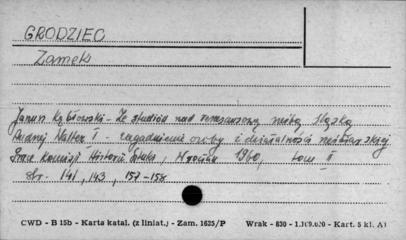 GRODZIEC
Zamek
Janusz Kębłowski - Ze studiów nad renesansową rzeźbą śląską
Andrzej Walter I - zagadnienie osoby i działalności rzeźbiarskiej
Prace Komisji Historii Sztuki, 1960, tom II
str. 141, 143, 157-158
CWD - B 15b - Karta katal. (z liniat.) - Zam. 1625/P Wrak - 630 - 1.109.020 - Kart. 5 kl. A1